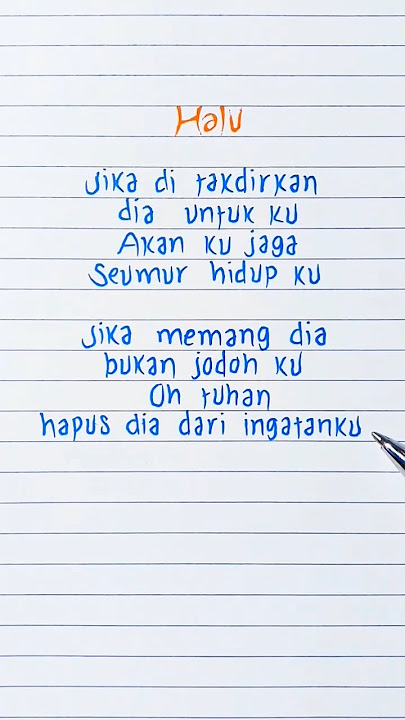 Halu
Jika di takdirkan
dia untuk ku
Akan ku jaga
Seumur hidup ku
Jika memang dia
bukan jodoh ku
Oh tuhan
hapus dia dari ingatanku